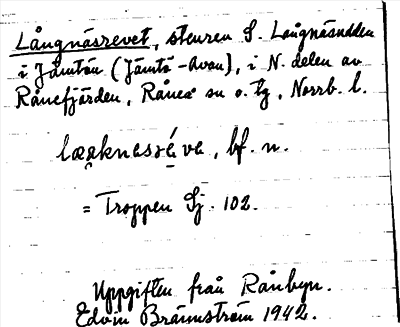 Långnäsrevet, stenrev S. Långnäsudden
i Jämtön (Jämtö-Avan), i N. delen av
Rånefjärden, Råneå sn o. tg, Norrb. l.
bf. n.
= Troppen Sj. 102.
Uppgiften från Rånbyn.
Edvin Brännström 1942.